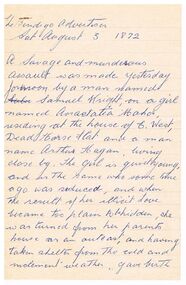 Bendigo Advertiser
Sat August 3 1872
A Savage and murderous
Assault was made yesterday
forenoon by a man named
Samuel Knight, on a girl
named Anastatia Hahn,
residing at the house of C. West,
Dead Horse Flat and a man
name Arthur Hagan living
close by. The girl is quite young,
and is the same who some time
ago was seduced, and when
the result of her illicit love
became too plain to be hidden, she
was turned from her parents
house as an outcast, and having
taken shelter from the cold and
inclement weather, gave birth